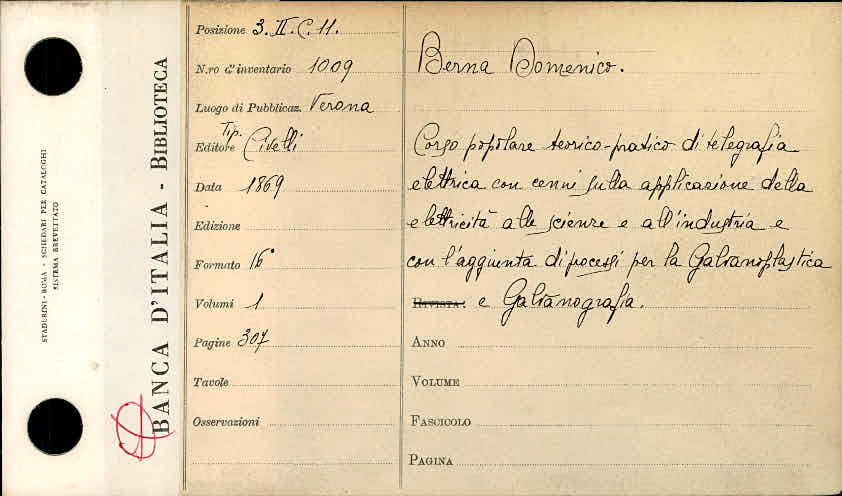 STADERINI - ROMA - SCHEDARI PER CATALOGHI
SISTEMA BREVETTATO
BANCA D'ITALIA - BIBLIOTECA
Posizione 3. II. C. 11.
N.ro d'inventario 1009
Luogo di Pubblicaz. Verona
Tip.
Editore Civelli
Data 1869
Edizione
Formato 16°
Volumi 1
Pagine 307
Tavole
Osservazioni
Berna Domenico.
Corso popolare teorico-pratico di telegrafia
elettrica con cenni sulla applicazione della
elettricità alle scienze e all'industria e
con l'aggiunta di processi per la Galvanoplastica
RIVISTA: e Galvanografia.
ANNO
VOLUME
FASCICOLO
PAGINA